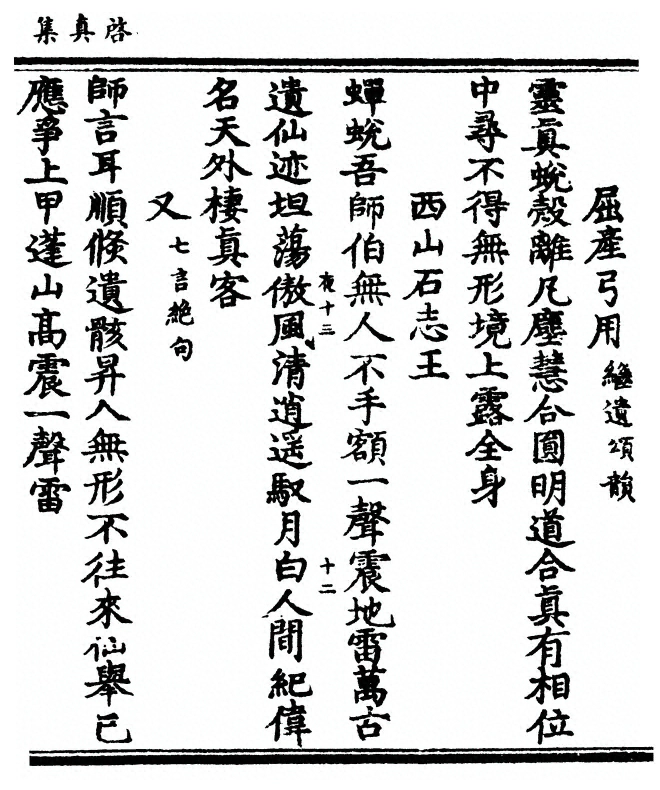 啓真集
屈產弓用 繼遺頌韻
靈真蛻殼離凡塵慧合圓明道合真有相位
中尋不得無形境上露全身
西山石志玉
蟬蛻吾師伯無人不手額一聲震地雷萬古
遺仙迹坦蕩傲風清逍遥馭月白人間紀偉
夜十三
十二
名天外棲真客
又 七言絶句
師言耳順倐遺骸昇入無形不往來仙舉已
應爭上甲蓬山高震一聲雷